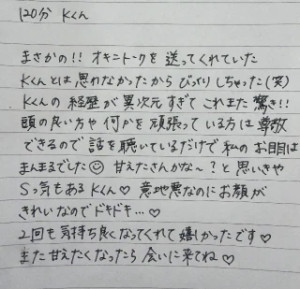 120分 Kくん
まさかの!! オキニトークを送ってくれていた
Kくんとは思わなかったからびっくりしちゃった(笑)
Kくんの経歴が異次元すぎてこれまた驚き!!
頭の良い方や何かを頑張っている方は尊敬
できるので話を聴いているだけで私のお目目は
まんまるでした☺ 甘えたさんかな~?と思いきや
Sっ気もあるKくん♡ 意地悪なのにお顔が
きれいなのでドキドキ…♡
2回も気持ち良くなってくれて嬉しかったです♡
また甘えたくなったら会いに来てね♡